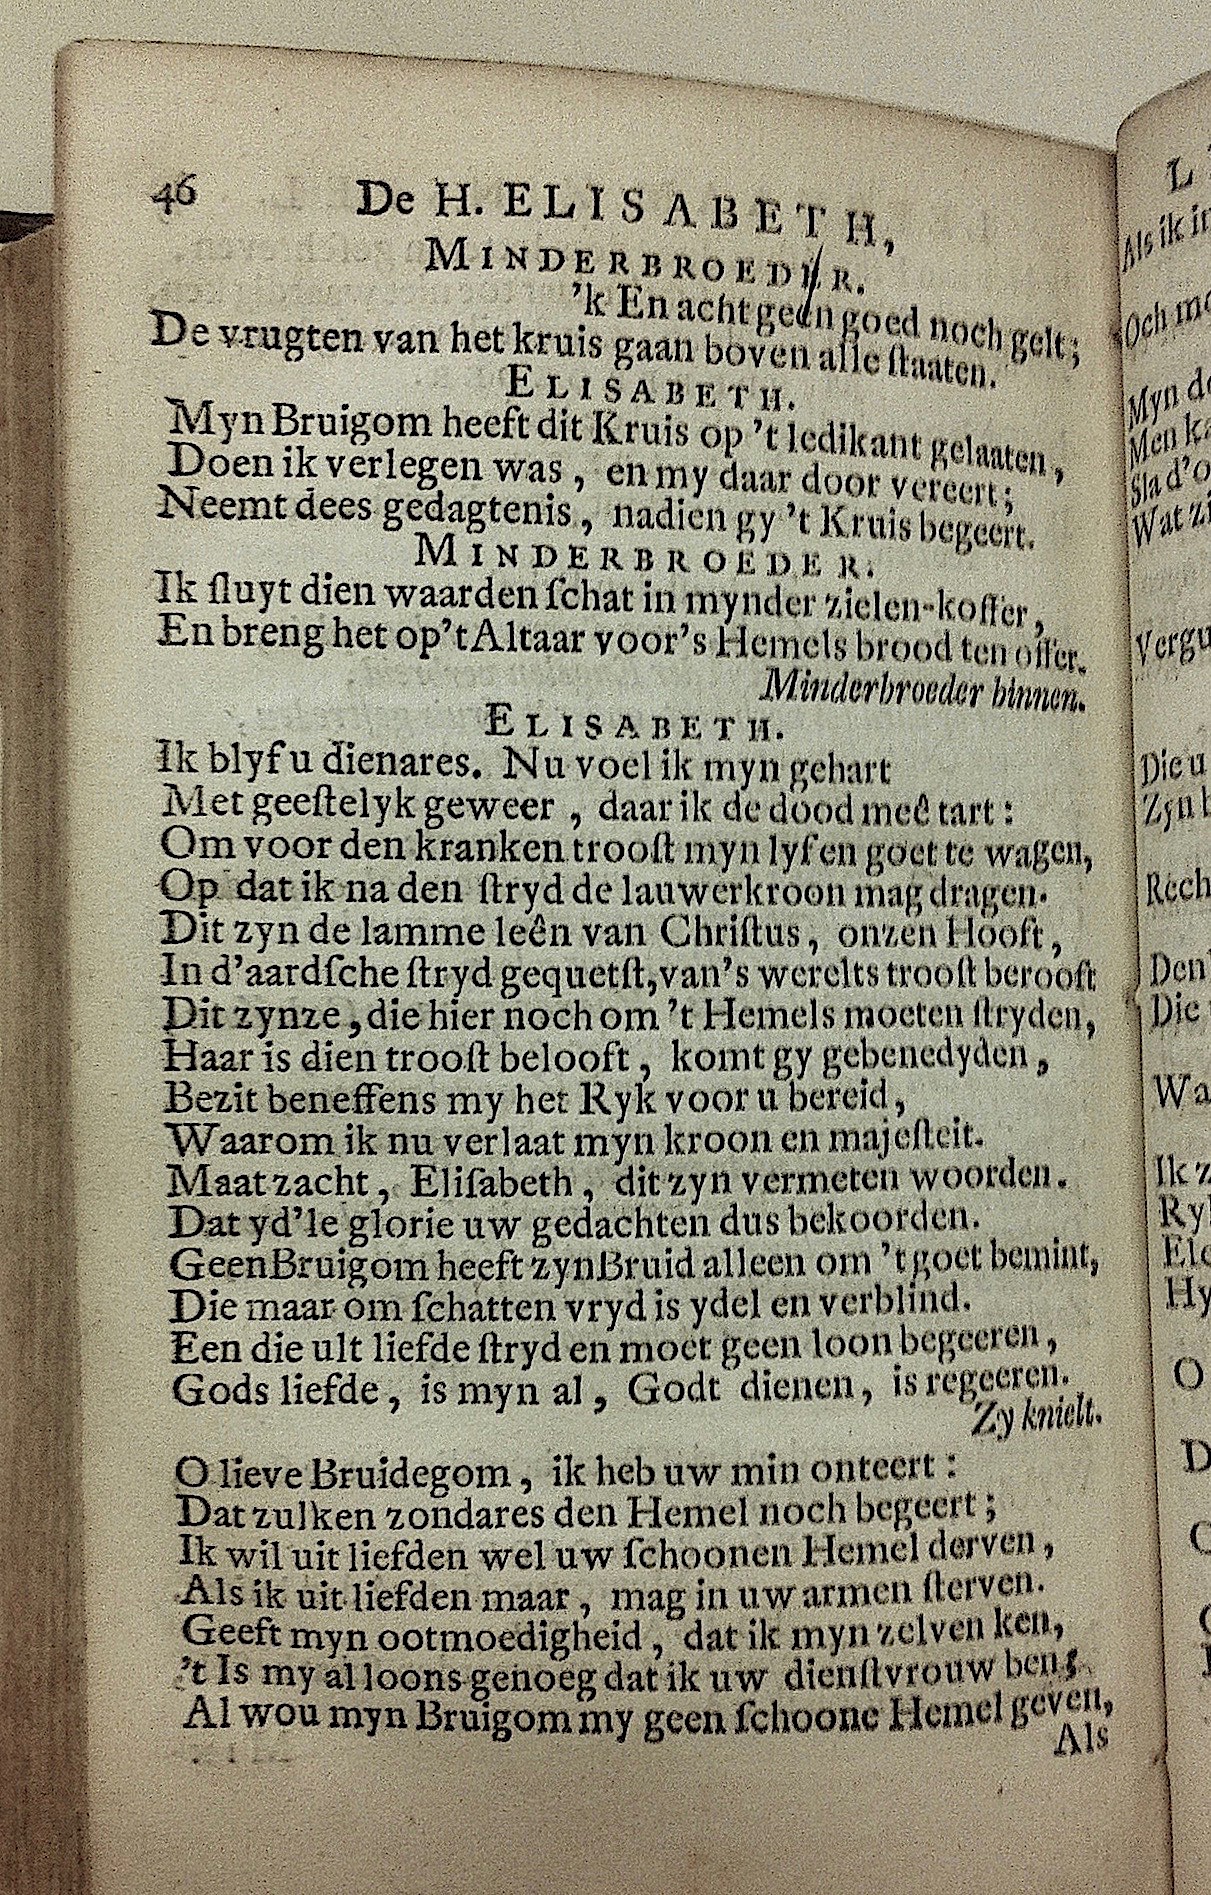 46 De H. ELISABETH,
MINDERBROEDER.
'k En acht geen goed noch gelt;
De vrugten van het kruis gaan boven alle ſtaaten.
ELISABETH.
Myn Bruigom heeft dit Kruis op 't ledikant gelaaten,
Doen ik verlegen was, en my daar door vereert;
Neemt dees gedagtenis, nadien gy 't Kruis begeert.
MINDERBROEDER.
Ik ſluyt dien waarden ſchat in mynder zielen-koffer,
En breng het op't Altaar voor's Hemels brood ten offer.
Minderbroeder binnen.
ELISABETH.
Ik blyf u dienares. Nu voel ik myn gehart
Met geeſtelyk geweer, daar ik de dood meê tart:
Om voor den kranken trooſt myn lyf en goet te wagen,
Op dat ik na den ſtryd de lauwerkroon mag dragen.
Dit zyn de lamme leên van Chriſtus, onzen Hooft,
In d'aardſche ſtryd gequetſt, van's werelts trooſt berooft
Dit zynze, die hier noch om 't Hemels moeten ſtryden,
Haar is dien trooſt belooft, komt gy gebenedyden,
Bezit beneffens my het Ryk voor u bereid,
Waarom ik nu verlaat myn kroon en majeſteit.
Maat zacht, Eliſabeth, dit zyn vermeten woorden.
Dat yd'le glorie uw gedachten dus bekoorden.
Geen Bruigom heeft zyn Bruid alleen om 't goet bemint,
Die maar om ſchatten vryd is ydel en verblind.
Een die ult liefde ſtryd en moet geen loon begeeren,
Gods liefde, is myn al, Godt dienen, is regeeren.
Zy knielt.
O lieve Bruidegom, ik heb uw min onteert:
Dat zulken zondares den Hemel noch begeert;
Ik wil uit liefden wel uw ſchoonen Hemel derven,
Als ik uit liefden maar, mag in uw armen ſterven.
Geeft myn ootmoedigheid, dat ik myn zelven ken,
't Is my al loons genoeg dat ik uw dienſtvrouw ben;
Al wou myn Bruigom my geen ſchoone Hemel geven,
Als
L
Als ik
Och
Myn
Men
Sla d'
Wat
Die u
Zyn
Den
Die
Ik
O
D